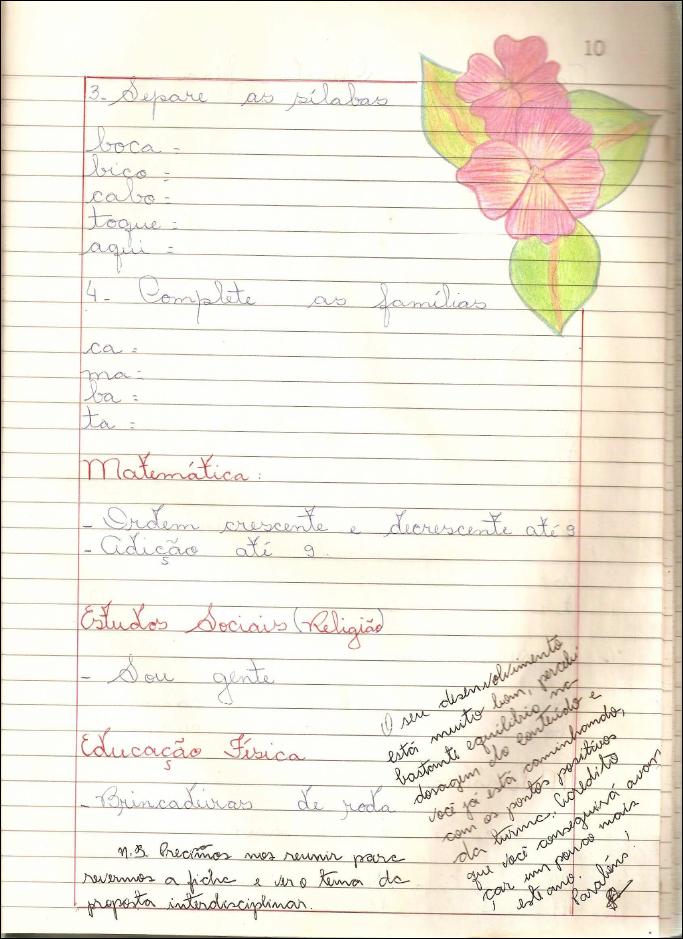 10
3. Separe as sílabas
boca =
bico =
cabo =
toque =
aqui =
4. Complete as famílias
ca =
ma =
ba =
ta =
Matemática:
- Ordem crescente e decrescente até 9
- Adição até 9.
Estudos Sociais (Religião)
- Sou gente
Educação Física
- Brincadeiras de roda
Precimos nos reunir para
revermos a ficha e ver o tema da
proposta interdisciplinar.
O seu desenvolvimento
está muito bom, percebi
bastante equilíbrio na
dosagem do conteúdo e
você já está caminhando,
com os pontos positivos
da turma. Acredito
que você conseguirá avan
çar um pouco mais
este ano.
Parabéns!